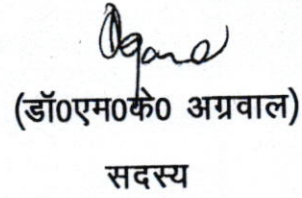 (डॉ0एम0के0 अग्रवाल)
सदस्य